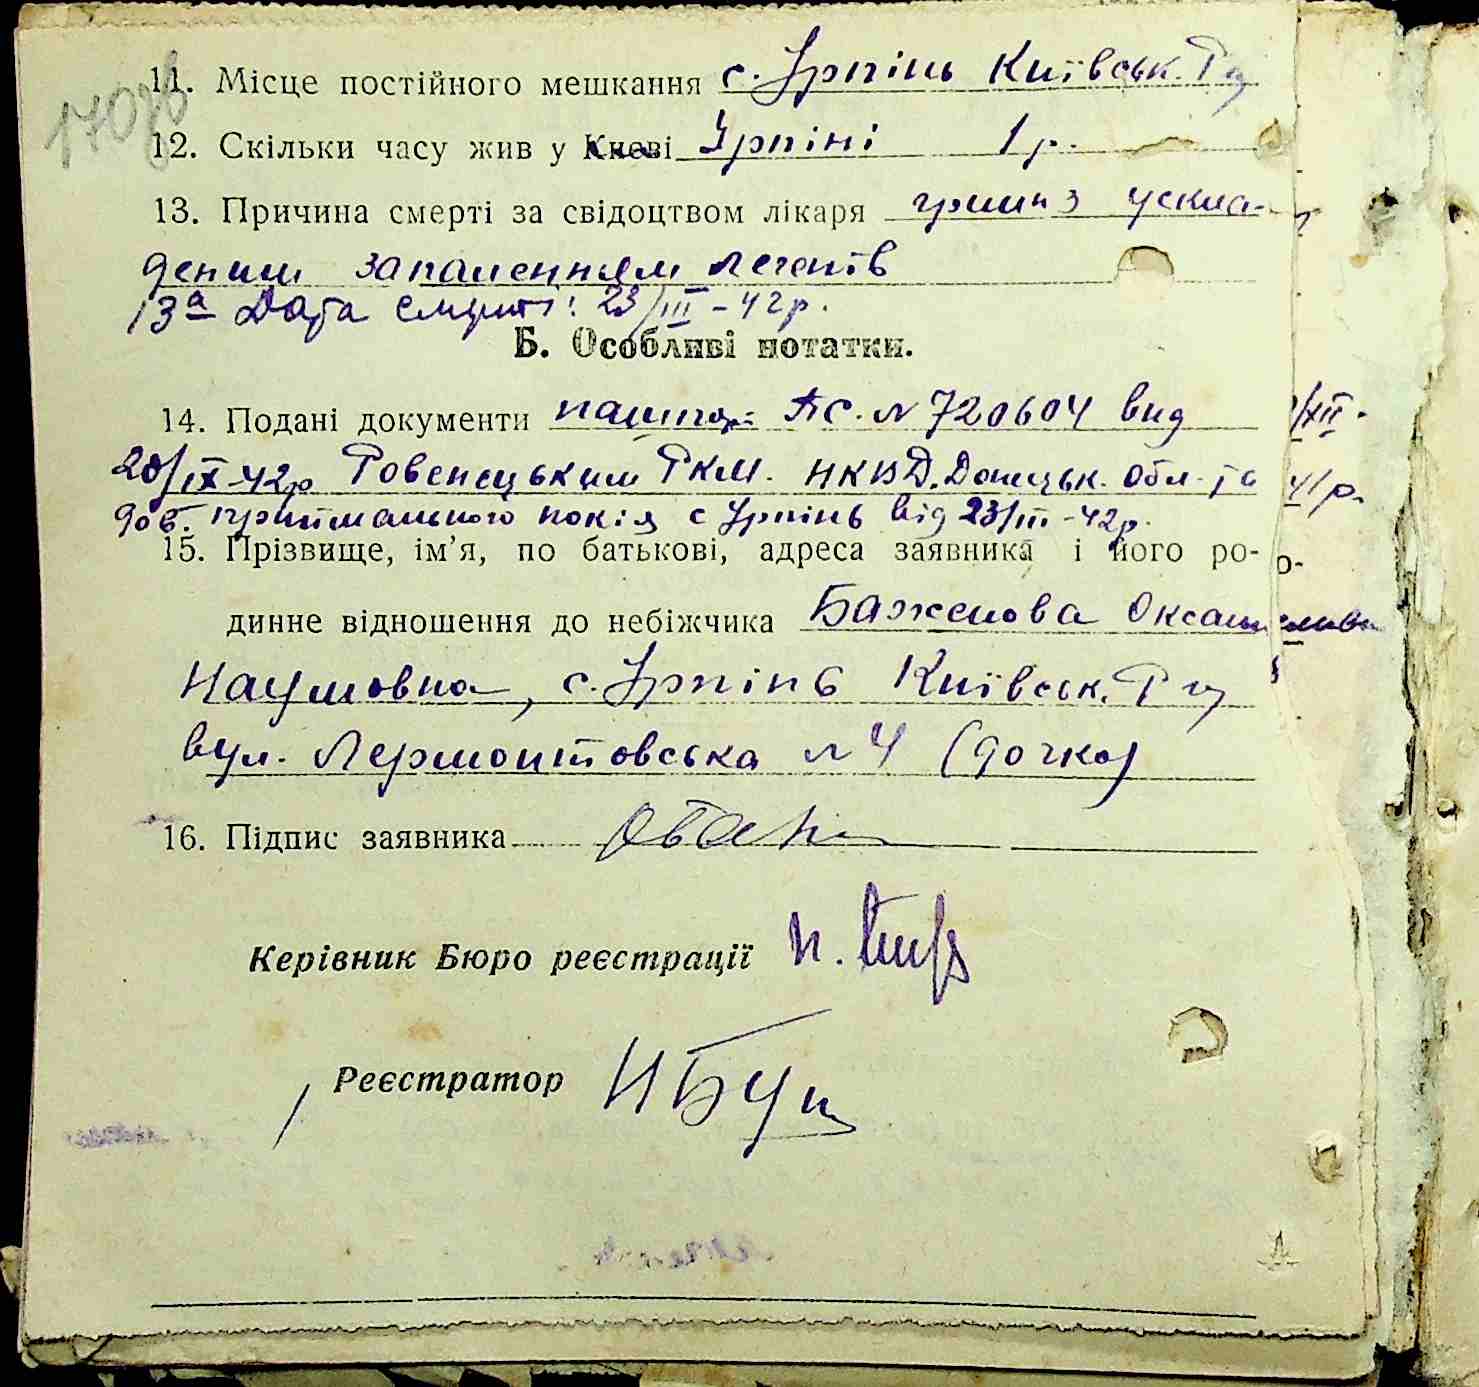 11. Місце постійного мешкання с. Ірпінь Київськ. Р-ну
12. Скільки часу жив у Києві Ірпіні 1 р.
13. Причина смерті за свідоцтвом лікаря грип з ускла-
деним запаленням легенів
13а Дата смерті: 23/III-42 р.
Б. Особливі нотатки.
14. Подані документи пашпорт ПС. № 720604 вид
20/IX-42р Ровенецьким РКМ. НКВД. Донецьк. Обл. та
дов. приймального покія с Ірпінь від 23/III-42р.
15. Прізвище, ім'я, по батькові, адреса заявника і його ро-
динне відношення до небіжчика Баженова Оксана
Наумовна, с. Ірпінь Київськ. Р-ну
вул. Лермонтовська № 4 (дочка)
16. Підпис заявника
Керівник Бюро реєстрації
Реєстратор
/XII-
41р.
о-